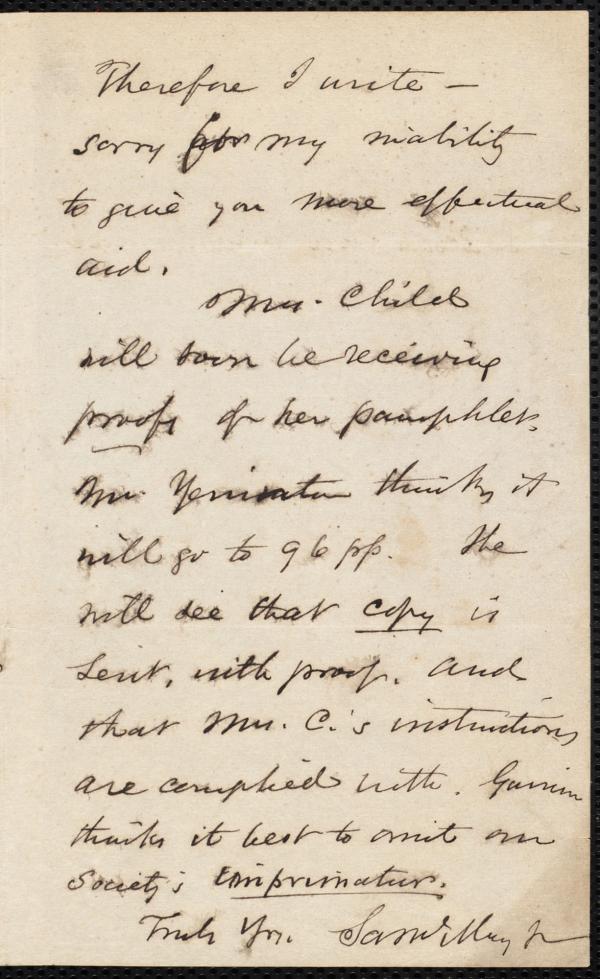 Therefore I write —
sorry for my inability
to give you more effectual
aid.
Mrs. Child
will soon be receiving
proofs of her pamphlet.
Mr. Yerrinton thinks it
will go to 96 pp. He
will see that copy is
sent, with proof, and
that Mrs. C.'s instructions
are complied with. Garrison
thinks it best to omit our
Society's imprimatur.
Truly Yrs. Saml. May Jr